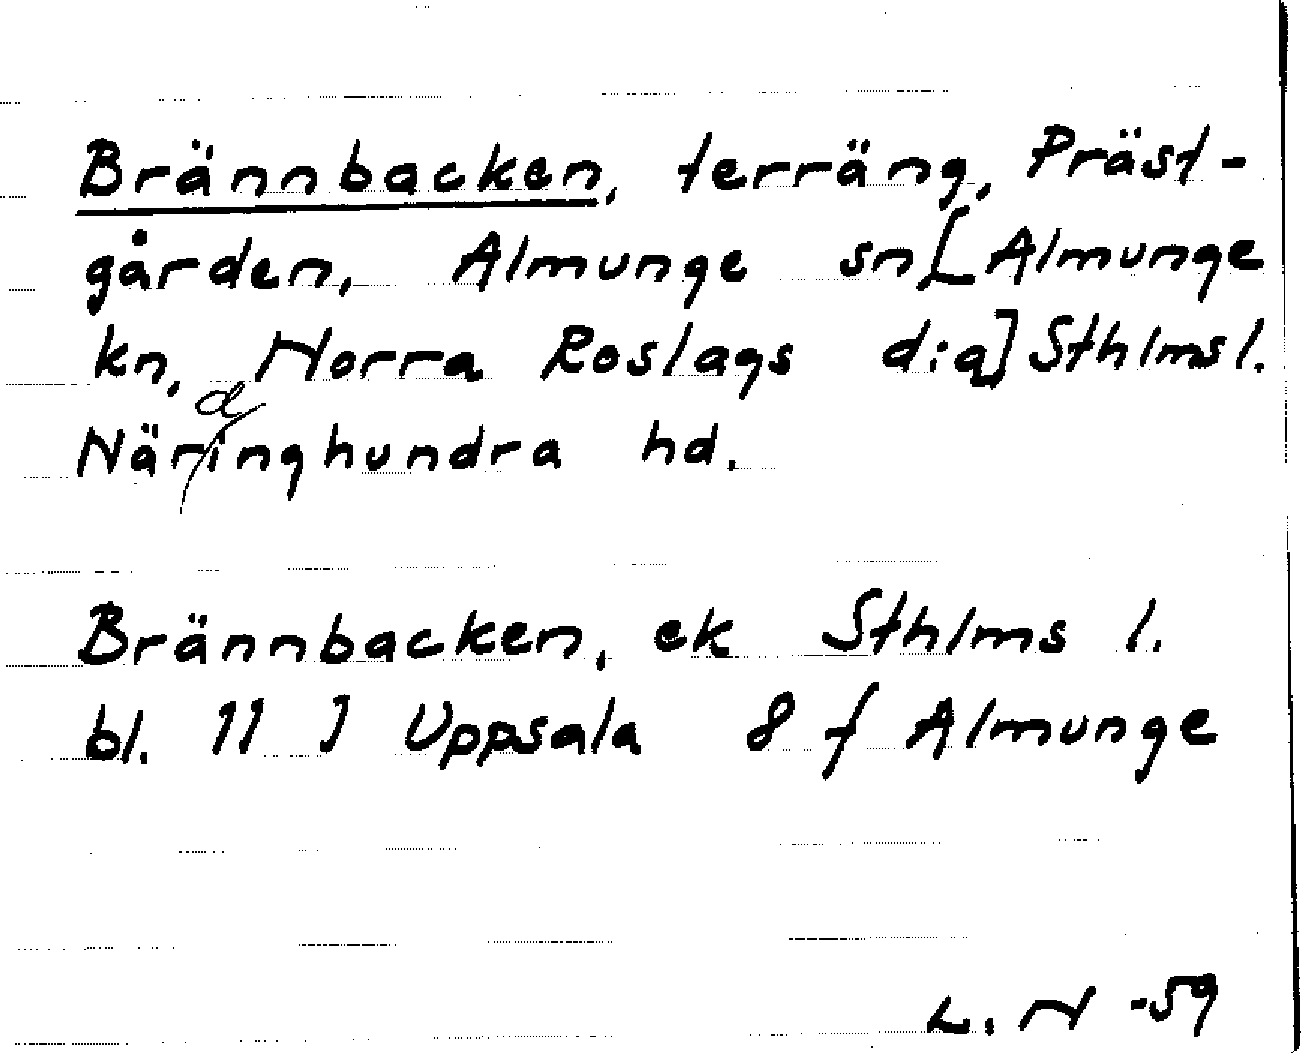 Brännbacken, terräng, Präst-
gården, Almunge sn [Almunge
kn, Norra Roslags d:a] Sthlms l.
d
Näringhundra hd.
Brännbacken, ek Sthlms l.
bl. 11 J Uppsala 8 f Almunge
L. N -59